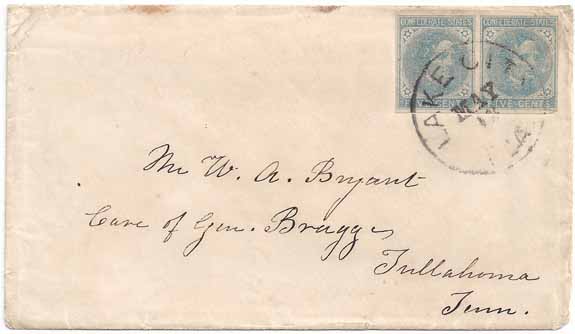 CONFEDERATE STATES CONFEDERATE STATES
FIVE CENTS FIVE CENTS
LAKE CITY
MAY
Mr W. A. Bryant
Care of Gen. Braggs
Tullahoma
Tenn.